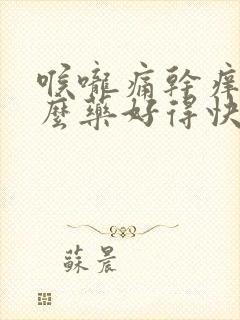 喉嚨痛幹癢
麼藥好得快
蘇晨